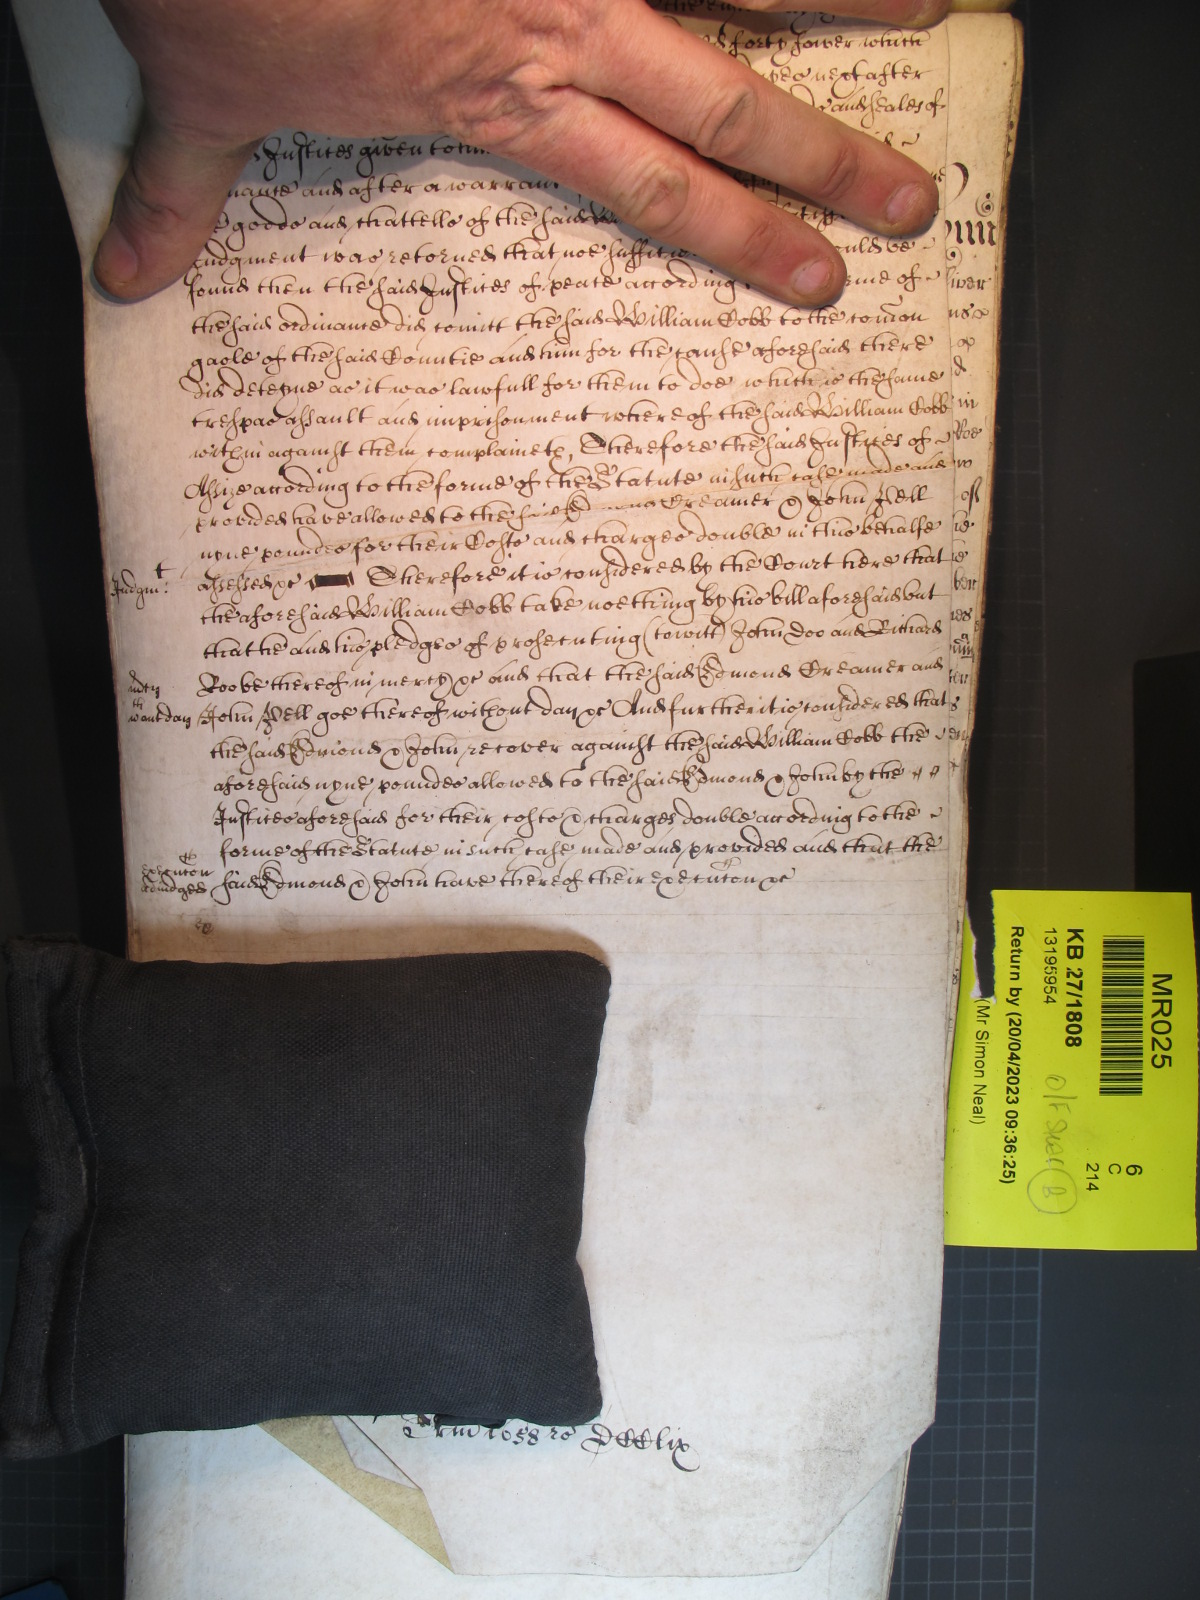 forty fower which
next after
and seales of
Justices given to him
nance and after a warrant
goods and chattells of the said
Judgment was retorned that noe sufficient could be
found then the said Justices of peace according forme of
the said ordinance did comitt the said William Cobb to the comon
gaole of the said Countie and him for the cause aforesaid there
did deteyne as it was lawfull for them to doe which is the same
trespas assault and imprisonment whereof the said William Cobb
within against them complaineth, Therefore the said Justices of
Assize according to the forme of the Statute in such case made and
provided have allowed to the said Edmond Creamer & John Pell
nyne poundes for their Costs and charges double in this behalfe
assessed &c Therefore it is considered by the Court here that
Judgmt
the aforesaid William Cobb take noething by his bill aforesaid but
that he and his pledges of prosecuting (to witt) John Doo and Richard
Roo be thereof in mercy &c and that the said Edmond Creamer and
mcy
John Pell goe thereof without day &c And further it is considered that
wthout day
the said Edmond & John recover against the said William Cobb the
aforesaid nyne poundes allowed to the said Edmond & John by the
Justices aforesaid for their costs & charges double according to the
forme of the Statute in such case made and provided and that the
said Edmond & John have thereof their execucon &c
execucon
adiudged
DCClix
MR025
KB 27/1808
13195954
Return by (20/04/2023 09:36:25)
(Mr Simon Neal)
6
C
214
B